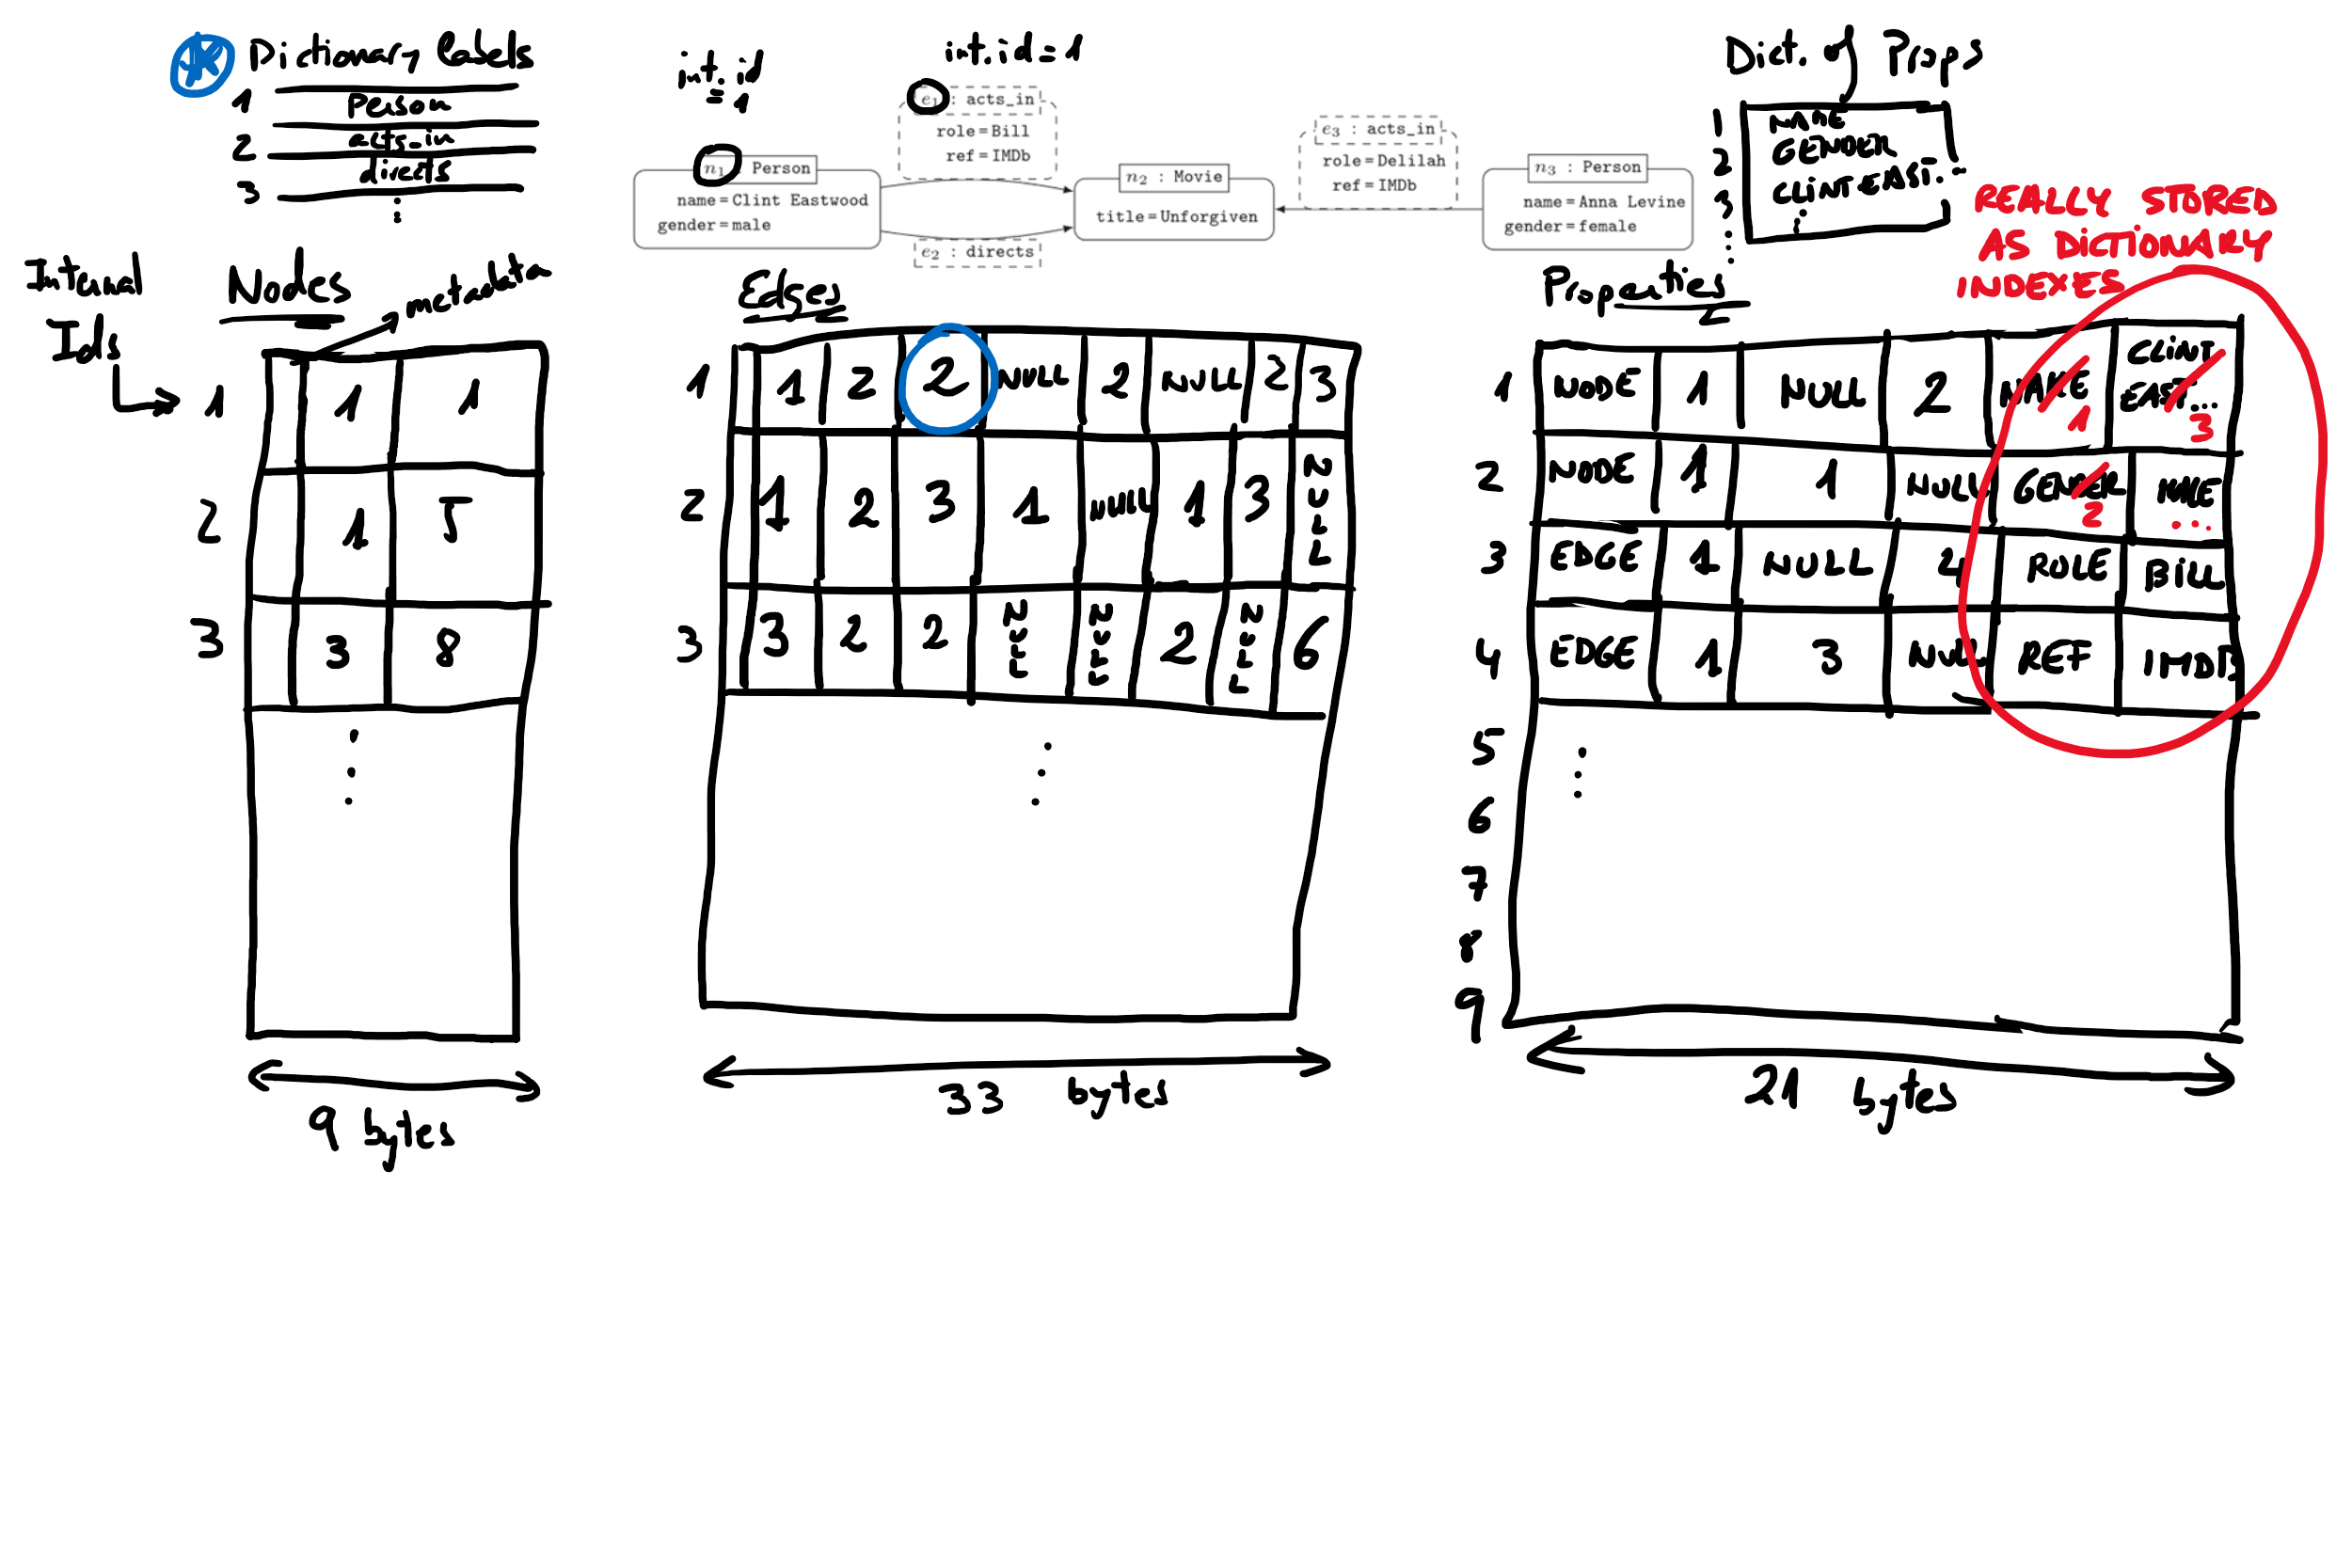 Dictionary labels
1 Person
2 acts-in
3 directs
int. id = 1
int. id = 1
e1 : acts_in
role = Bill
ref = IMDb
n1 : Person
name = Clint Eastwood
gender = male
n2 : Movie
title = Unforgiven
e2 : directs
e3 : acts_in
role = Delilah
ref = IMDb
n3 : Person
name = Anna Levine
gender = female
Dict. of Props
1 NAME
2 GENDER
3 CLINT EAST...
REALLY STORED
AS DICTIONARY
INDEXES
Internal
Ids
Nodes
metadata
1 1 1
2 1 5
3 3 8
9 bytes
Edges
1 1 2 2 NULL 2 NULL 2 3
2 1 2 3 1 NULL 1 3 NULL
3 3 2 2 NULL NULL 2 NULL 6
33 bytes
Properties
1 NODE 1 NULL 2 NAME 1 CLINT EAST... 3
2 NODE 1 1 NULL GENDER 2 MALE ...
3 EDGE 1 NULL 4 ROLE BILL
4 EDGE 1 3 NULL REF IMDB
5
6
7
8
9
21 bytes